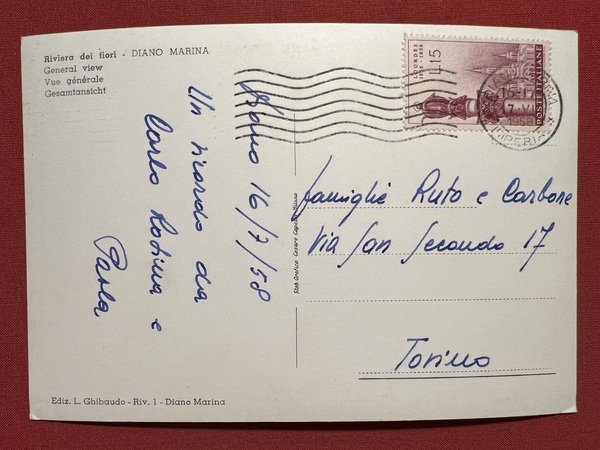 Riviera dei fiori - DIANO MARINA
General view
Vue générale
Gesamtansicht
Diano 16/7/58
Un ricordo da
Carlo Rosina e
Paola
LOURDES
1858 - 1958
L.15
POSTE ITALIANE
15-17
1958
IMPERIA
famiglie Ruto e Carbone
Via San Secondo 17
Torino
Stab. Grafico Cesare Capello Milano
Ediz. L. Ghibaudo - Riv. 1 - Diano Marina